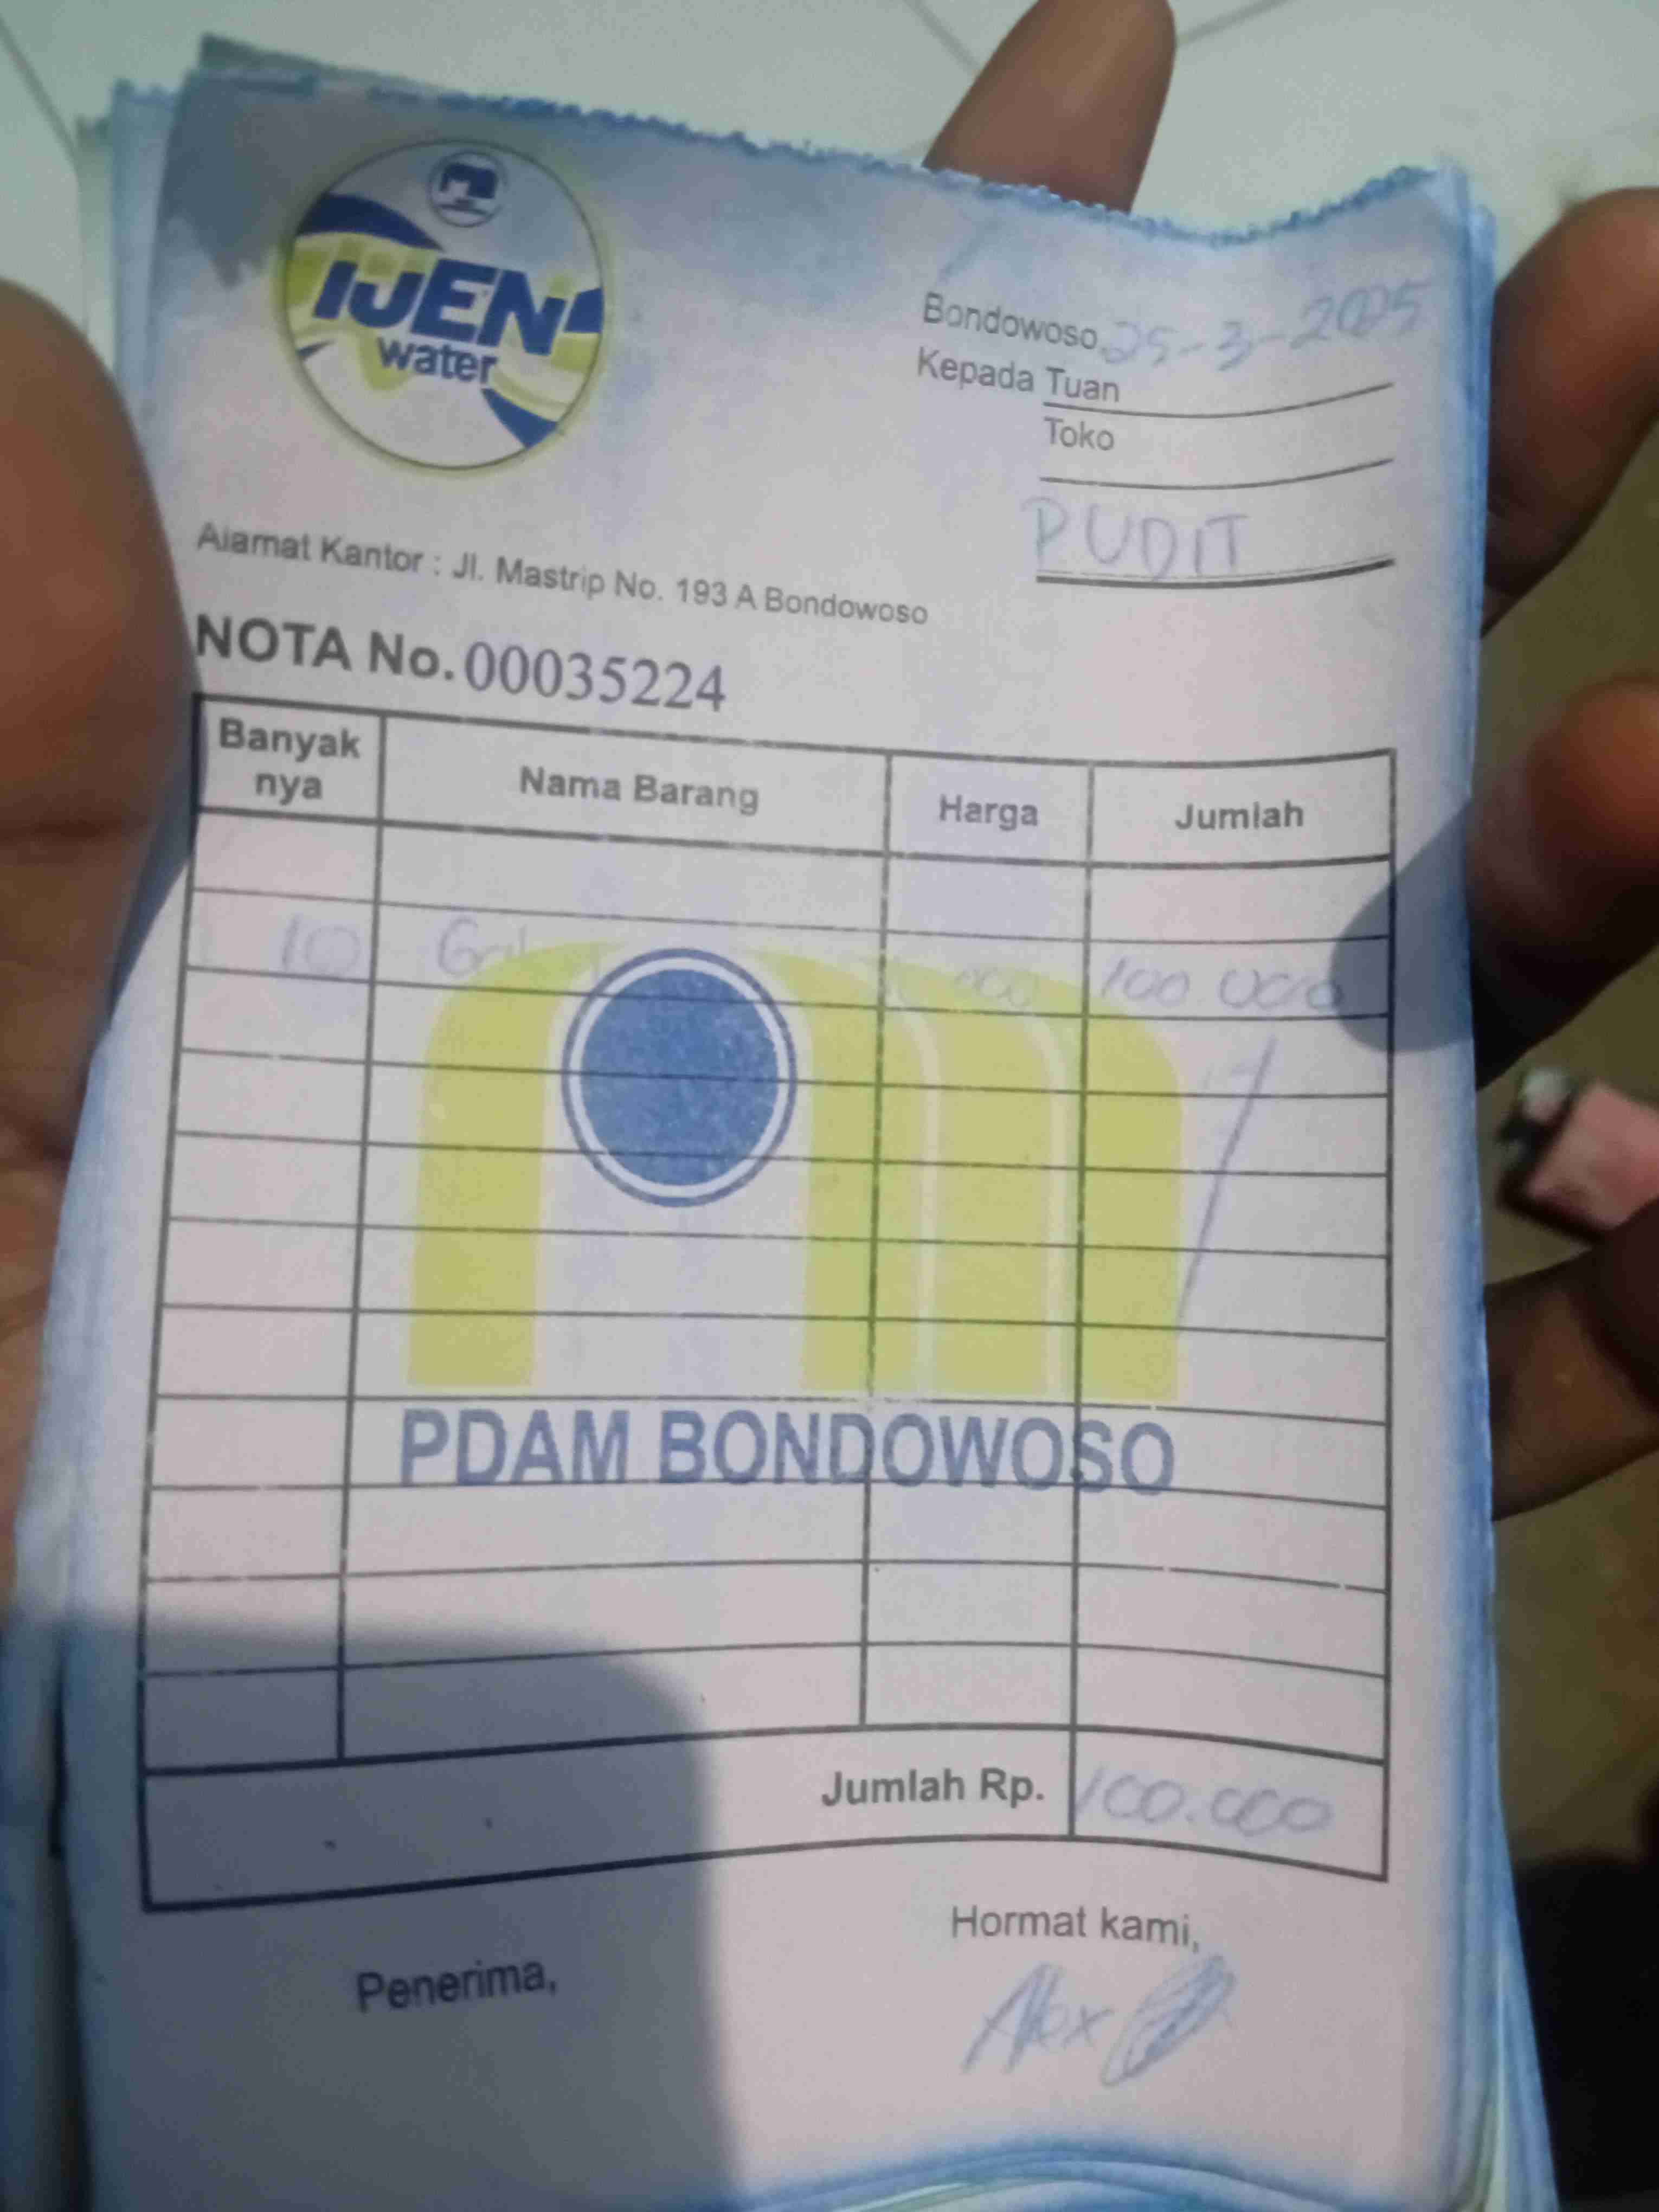 IJEN
water
Bondowoso, 25-3-2025
Kepada Tuan
Toko
PUDIT
Alamat Kantor : Jl. Mastrip No. 193 A Bondowoso
NOTA No. 00035224
Banyak nya Nama Barang Harga Jumlah
10 Gal 100.000
PDAM BONDOWOSO
Jumlah Rp. 100.000
Hormat kami,
Penerima,
Alex